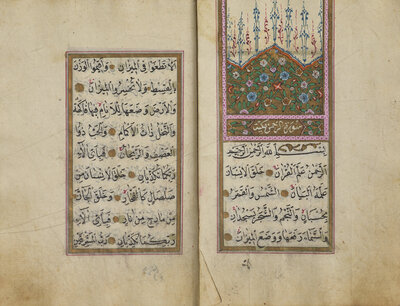 سورة الرحمن مكية
بِسْمِ اللهِ الرَّحْمٰنِ الرَّحِيمِ
اَلرَّحْمٰنُ عَلَّمَ الْقُرْاٰنَ خَلَقَ الْاِنْسَانَ
عَلَّمَهُ الْبَيَانَ اَلشَّمْسُ وَالْقَمَرُ
بِحُسْبَانٍ وَالنَّجْمُ وَالشَّجَرُ يَسْجُدَانِ
وَالسَّمَاءَ رَفَعَهَا وَوَضَعَ الْمِيزَانَ
اَلَّا تَطْغَوْا فِي الْمِيزَانِ وَاَقِيمُوا الْوَزْنَ
بِالْقِسْطِ وَلَا تُخْسِرُوا الْمِيزَانَ
وَالْاَرْضَ وَضَعَهَا لِلْاَنَامِ فِيهَا فَاكِهَةٌ
وَالنَّخْلُ ذَاتُ الْاَكْمَامِ وَالْحَبُّ ذُو
الْعَصْفِ وَالرَّيْحَانُ فَبِاَيِّ اٰلَاءِ
رَبِّكُمَا تُكَذِّبَانِ خَلَقَ الْاِنْسَانَ مِنْ
صَلْصَالٍ كَالْفَخَّارِ وَخَلَقَ الْجَانَّ
مِنْ مَارِجٍ مِنْ نَارٍ فَبِاَيِّ اٰلَاءِ
رَبِّكُمَا تُكَذِّبَانِ رَبُّ الْمَشْرِقَيْنِ